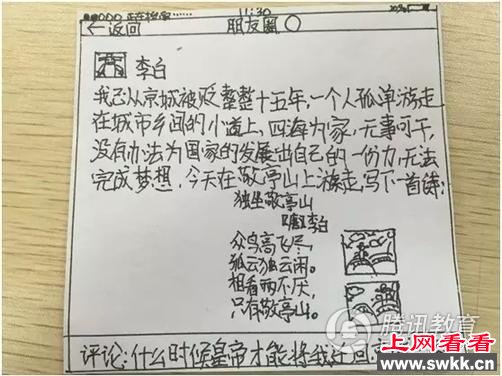 11:30
←返回 朋友圈
李白
我已从京城被贬整整十五年,一个人孤单游走
在城市乡间的小道上,四海为家,无事可干,
没有办法为国家的发展出自己的一份力,无法
完成梦想,今天在敬亭山上游走,写下一首诗:
独坐敬亭山
[唐]李白
众鸟高飞尽,
孤云独云闲。
相看两不厌,
只有敬亭山。
评论:什么时候皇帝才能将我召回
腾讯教育
上网看看
www.swkk.cn